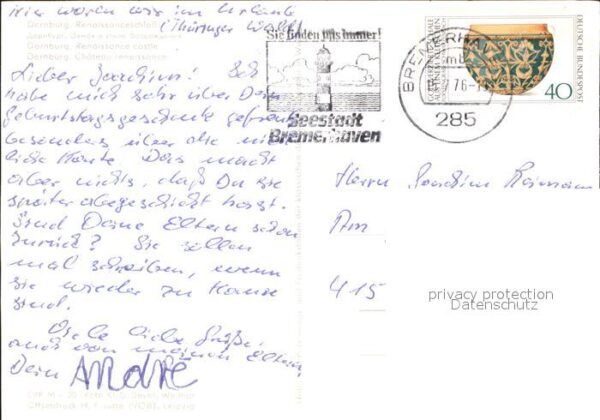 Hier waren wir im Urlaub
(Thüringer Wald)
Dornburg, Renaissanceschloß
Dornburg, Renaissance castle
Dornburg, Château renaissance
Lieber Joachim! Ich
habe mich sehr über Dein
Geburtstagsgeschenk gefreut
besonders über die
liebe Karte. Das macht
aber nichts, daß Du sie
später abgeschickt hast.
Sind Deine Eltern schon
zurück? Sie sollen
mal schreiben, wenn
sie wieder zu Hause
sind.
Viele liebe Grüße,
auch von meinen Eltern
Dein André
Sie finden uns immer!
Seestadt
Bremerhaven
BREMERHAVEN
76
285
DEUTSCHE BUNDESPOST
40
Herrn Joachim
Am
415
privacy protection
Datenschutz